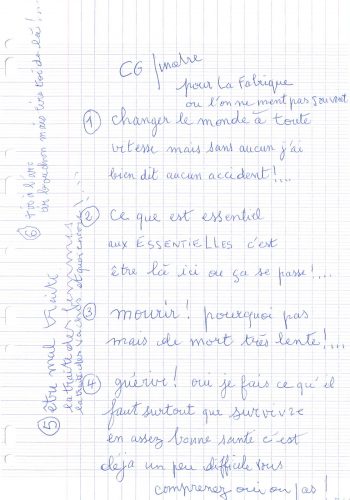 CG / matre
pour La Fabrique
ou l'on ne ment pas souvent
① changer le monde à toute
vitesse mais sans aucun j'ai
bien dit aucun accident!...
② ce que est essentiel
aux ESSENTIELLES c'est
être là ici ou ça se passe!...
③ mourir! pourquoi pas
mais de mort très lente!...
④ guérir! oui je fais ce qu'il
faut surtout que survivre
en assez bonne santé c'est
déja un peu difficile vous
comprenez oui ou pas!
⑤ être mal traité
la traite des femmes
la traite des vaches et quoi encore!...
⑥ toi l'ami
un bouchon mais tire toi de là!...